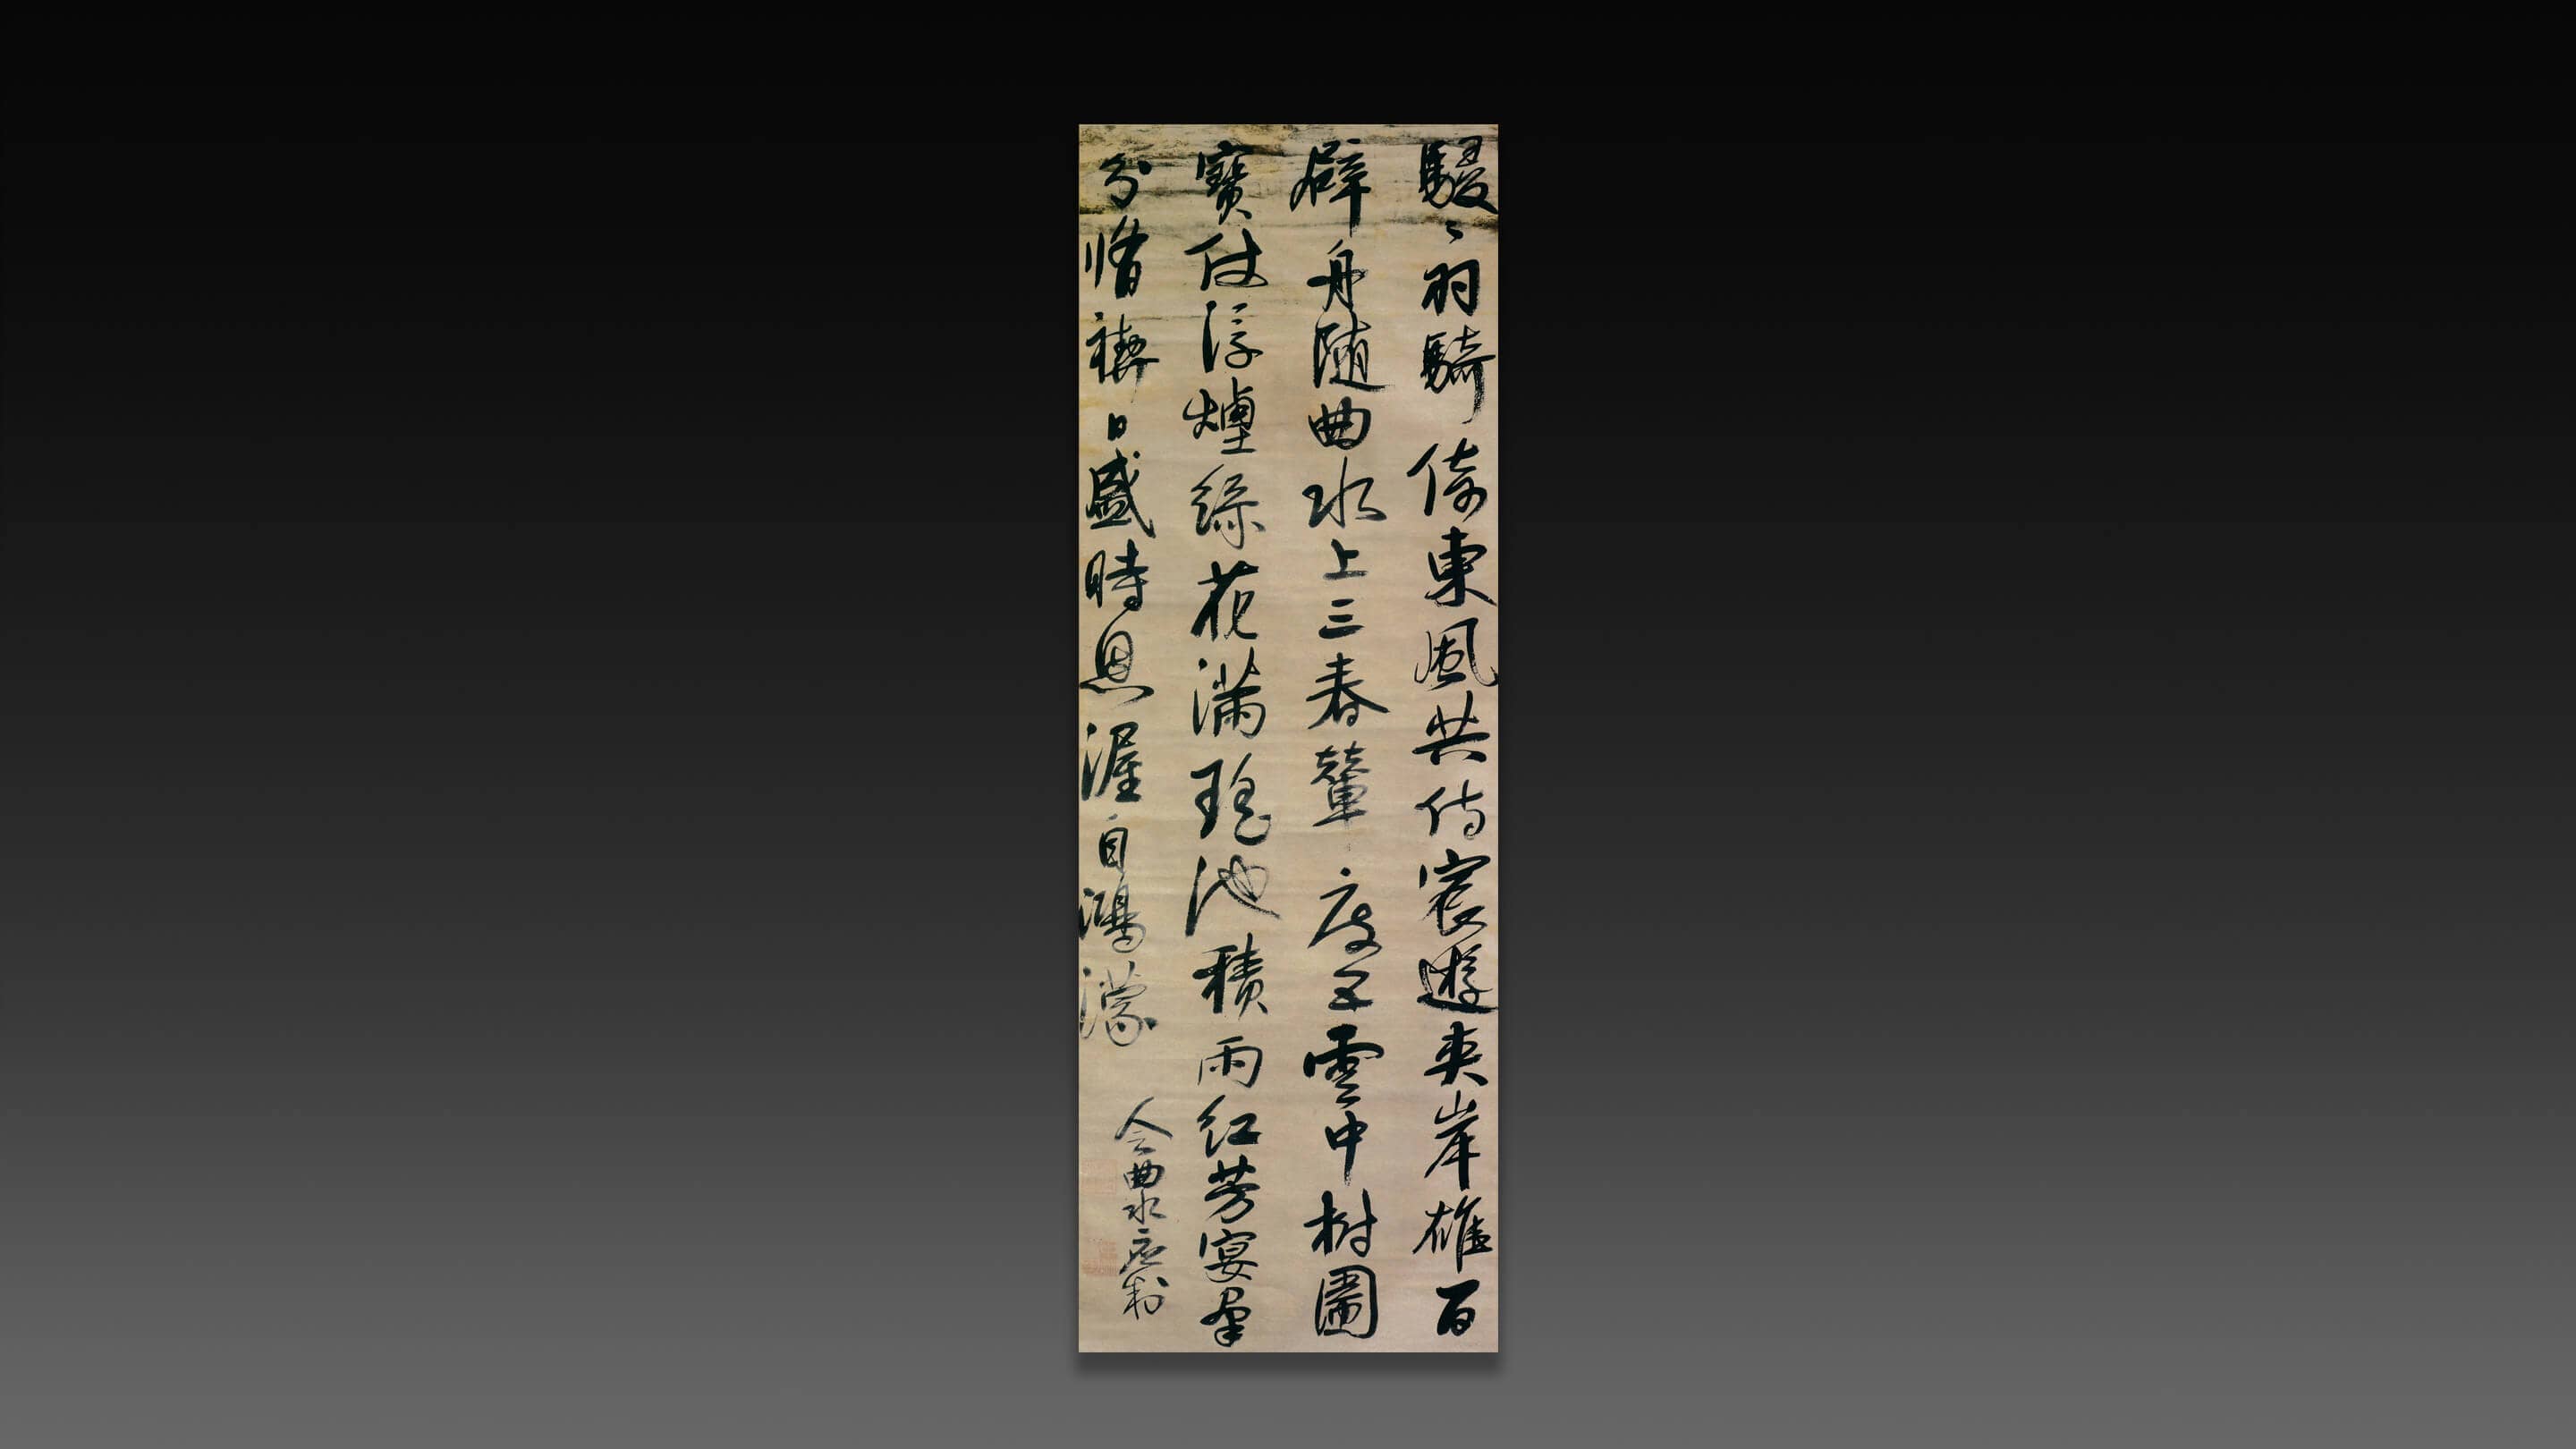 駸〻羽騎倚東風共侍宸遊夾岸雄百
辟舟隨曲水上三春輦度五雲中樹圖
寳仗浮煙綠花滿瑤池積雨紅芳宴
分脩禊日盛時恩渥自鴻濛
曲水應制